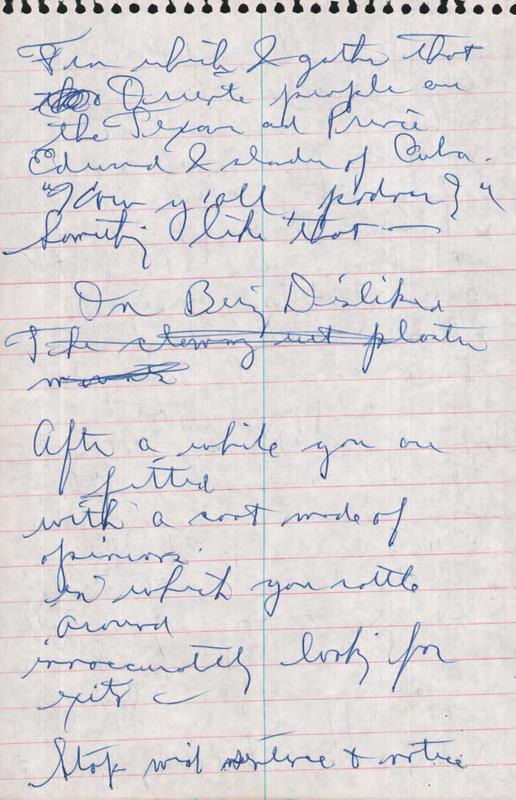 From which I gather that
Oriente people are
the Texan and Prince
Edward Islander of Cuba.
"How y'all podner?"
Something like that —
On Being Disliked
The stewing out plaster
After a while you are
fitted
with a coat made of
opinions.
in which you rattle
around
innaccurately looking for
exits —
Stop mid sentence & notice